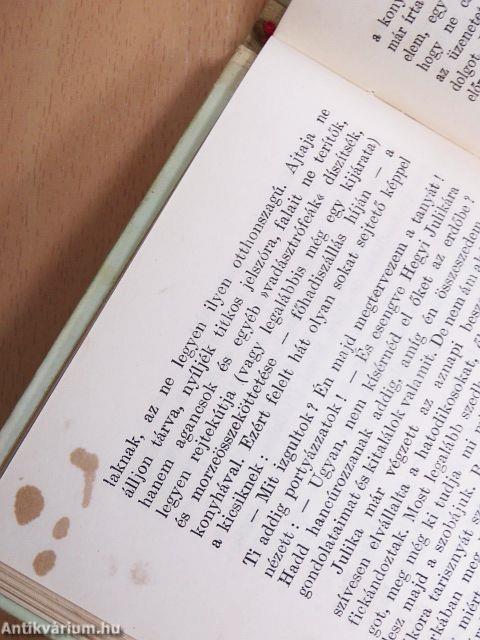 a kony
már írta
elem, egy
hogy ne e
az üzenete
dolgot
előr
laknak, az ne legyen ilyen otthonszagú. Ajtaja ne
álljon tárva, nyíljék titkos jelszóra, falait ne terítők,
hanem agancsok és egyéb »vadásztrófeák« díszítsék,
legyen rejtekútja (vagy legalábbis még egy kijárata)
és morzeösszeköttetése — főhadiszállás híján — a
konyhával. Ezért felelt hát olyan sokat sejtető képpel
a kicsiknek:
— Mit izgultok? Én majd megtervezem a tanyát!
Ti addig portyázzatok! — És esengve Hegyi Julikára
nézett: — Ugyan, nem kísérnéd el őket az erdőbe?
Hadd hancúrozzanak addig, amíg én összeszedem
gondolataimat és kitalálok valamit. De nem ám al
Julika már végzett az aznapi besz
szívesen elvállalta a hatodikosokat,
fickándoztak. Most legalább szedh
got, meg még ki tudja mi
esz majd a szobájuk.
ora tarisznyát sz
kában meg
miért
Antikvárium.hu